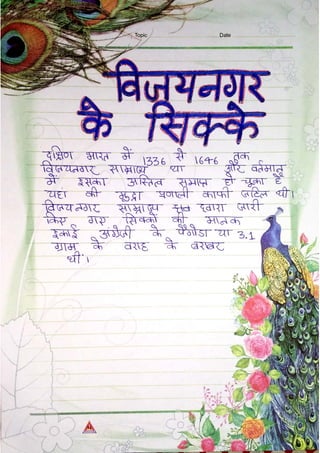 Topic Date
विजयनगर
के सिक्के
दक्षिण भारत में 1336 से 1646 तक
विजयनगर साम्राज्य था और वर्तमान
में इसका अस्तित्व समाप्त हो चुका है
यहा की मुद्रा प्रणाली काफी जटिल थी।
विजयनगर साम्राज्य द्वारा जारी
किए गए सिक्कों की मानक
इकाई अंग्रेजी के पैगोडा या 3.1
ग्राम के वराह के बराबर
थी।